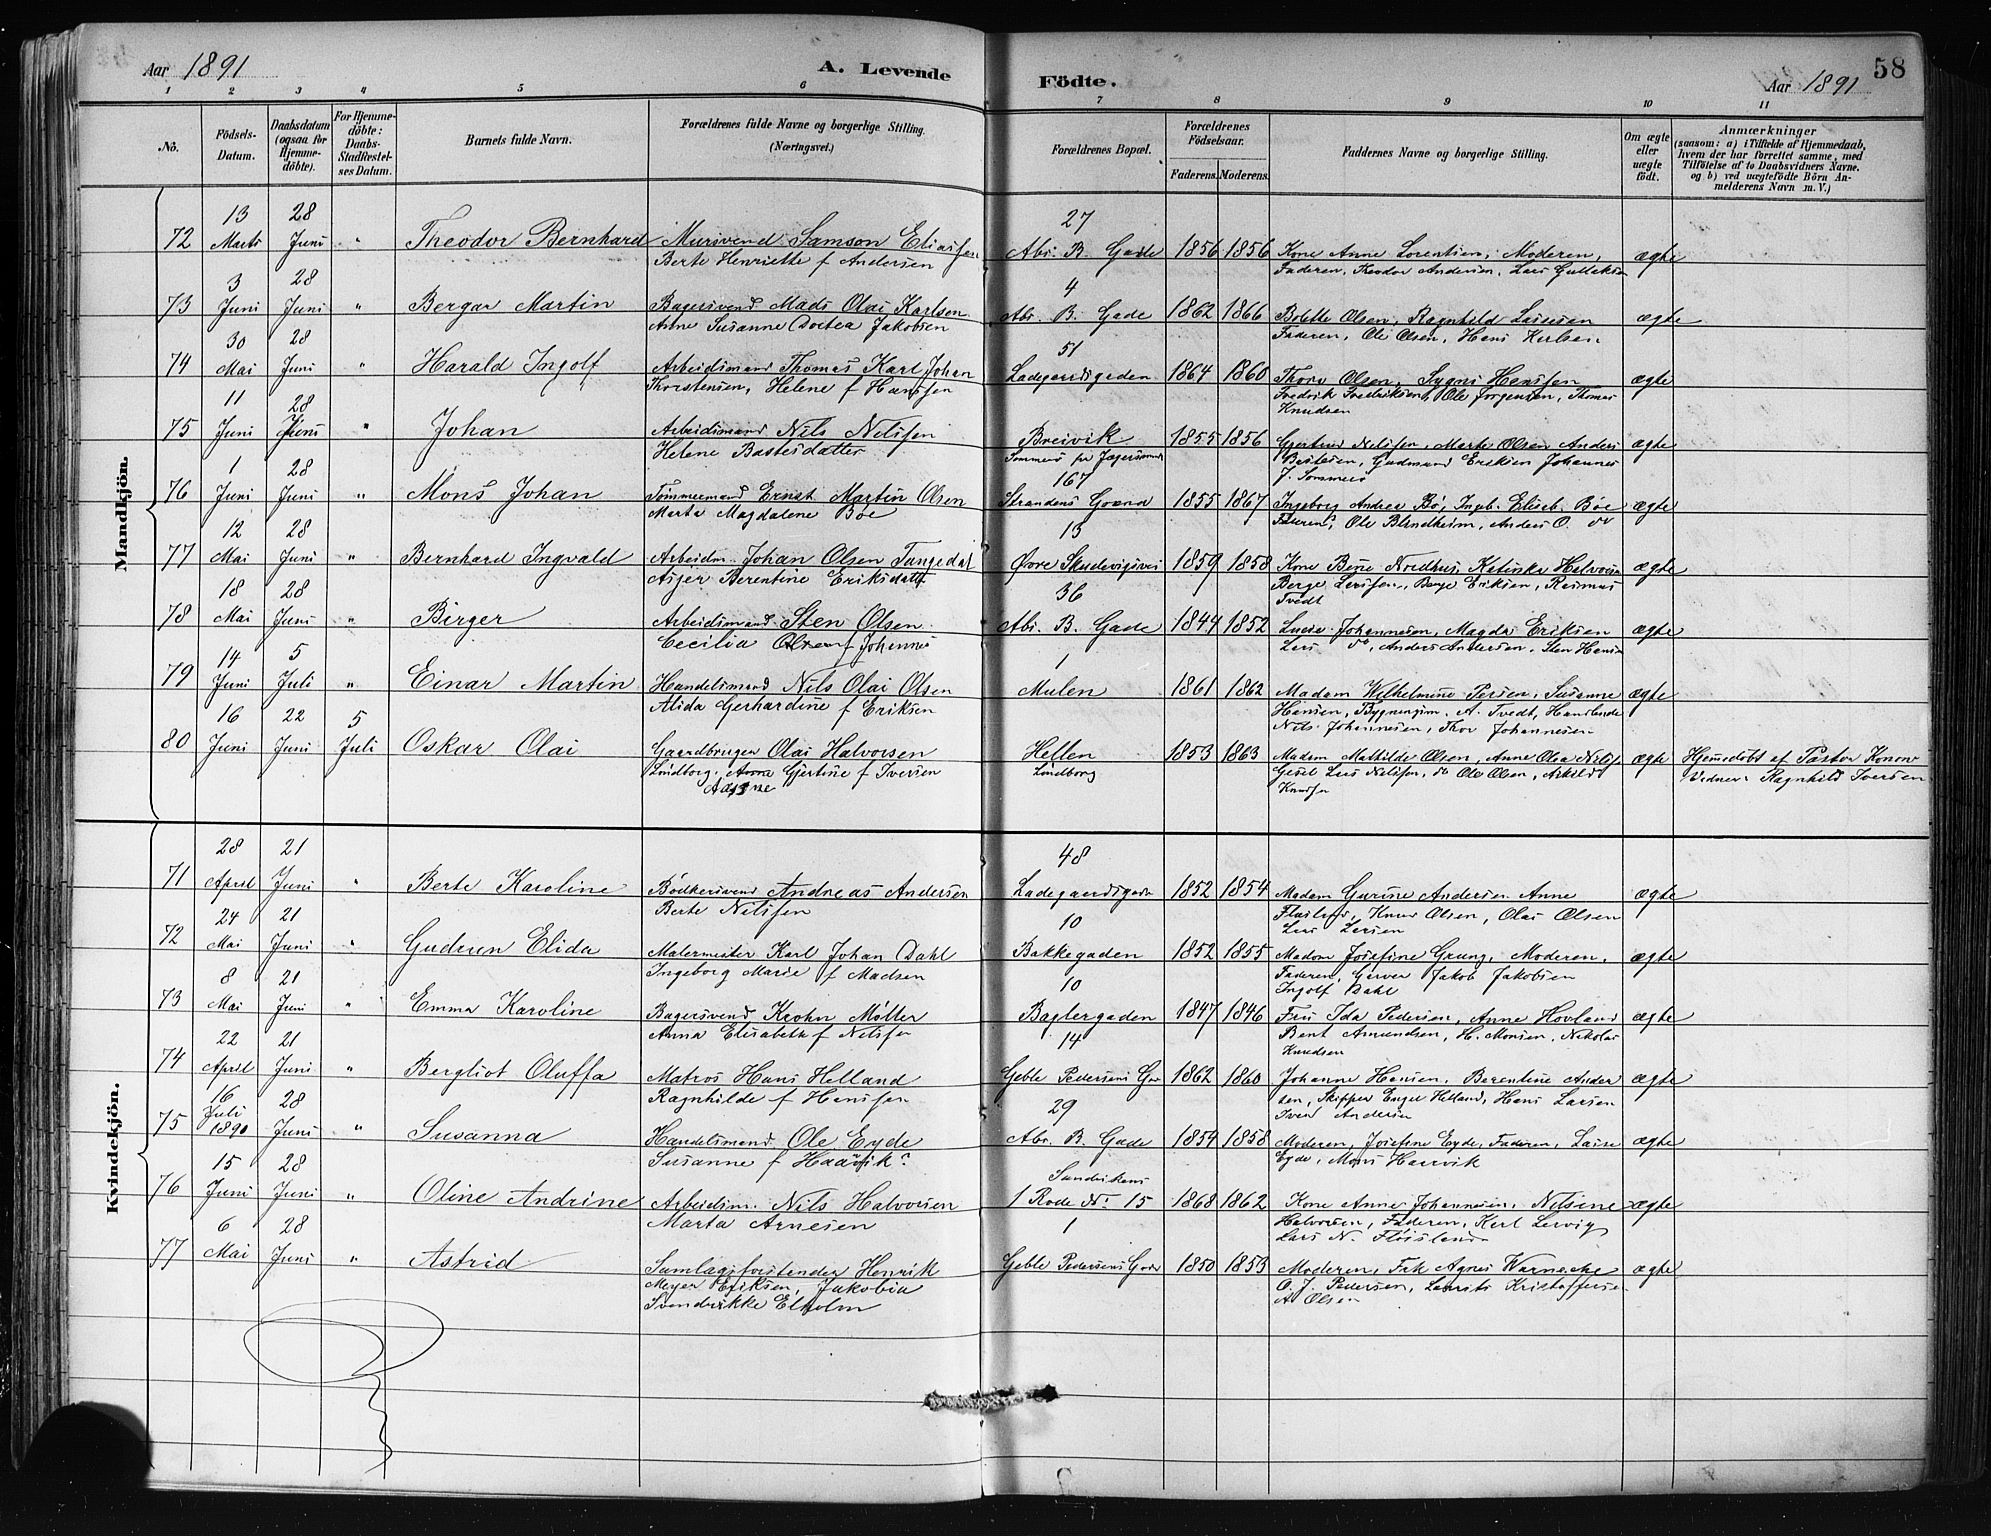 Aar 1891
A. Levende Födte.
Aar 1891
58
1 2 3 4 5 6 7 8 9 10 11
No.
Födsels-Datum.
Daabsdatum (ogsaa for Hjemme-döbte).
For Hjemme-döbte: Daabs-Stadfæstel-ses Datum.
Barnets fulde Navn.
Forældrenes fulde Navne og borgerlige Stilling.
(Næringsvei.)
Forældrenes Bopæl.
Forældrenes Födselsaar.
Faderens. Moderens.
Faddernes Navne og borgerlige Stilling.
Om ægte eller uægte födt.
Anmærkninger
(saasom: a) i Tilfælde af Hjemmedaab, hvem der har forrettet samme, med Tilföielse af to Daabsvidners Navne. og b) ved uægtefödte Börn An-melderens Navn m. V.)
Mandkjön.
13 28 27
72 Marts Juni " Theodor Bernhard Mursvend Samson Eliassen Abr. B. Gade 1856 1856 Kone Anne Lorentsen, Moderen, ægte
Berte Henriette f Andersen Faderen, Theodor Andersen, Lars Gulleksen
3 28 4
73 Juni Juni " Bergar Martin Bagersvend Mads Olai Karlsen Abr. B. Gade 1862 1866 Bolette Olsen, Ragnhild Larsen ægte
Anne Susanne Dortea Jakobsen Faderen, Ole Olsen, Hans Karlsen
30 28 51
74 Mai Juni " Harald Ingolf Arbeidsmand Thomas Karl Johan Ladegaardsgaden 1864 1860 Thora Olsen, Sygni Hansen ægte
Thorstensen, Helene f Hanssen Fredrik Fredriksen, Ole Jörgensen, Thomas
Knudsen
11 28
75 Juni Juni " Johan Arbeidsmand Nils Nilsen Breivik 1855 1856 Gjertrud Nilssen, Marte Olsen, Anders ægte
Helene Bastesdatter Gudmund Eriksen Johannes
J. Sommerö
1 28 167
76 Juni Juni " Mons Johan Tömmermand Ernst Martin Olsen Strandens Grænd 1855 1867 Ingeborg Andrea Bö, Ingb. Eliseb. Böe ægte
Marta Magdalene Böe Faderen, Ole Blindheim, Anders O. do
12 28 13
77 Mai Juni " Bernhard Ingvald Arbeidsm. Johan Olsen Tungedal Övre Skudevigsvei 1859 1858 Kone Bene Nordhus, Katinka Halvorsen ægte
Berentine Eriksdatt Berge Larssen, Berge Eriksen, Rasmus
Tvedt
18 28 36
78 Mai Juni " Birger Arbeidsmand Sten Olsen Abr. B. Gade 1844 1852 Lucie Johannesen, Magda Eriksen ægte
Cecilia Olsen f Johannes Lars do, Anders Andersen, Sten Hansen
14 5 1
79 Juni Juli " Einar Martin Handelsmand Nils Olai Olsen Mulen 1861 1862 Madam Wilhelmine Persen, Susanne ægte
Alida Gerhardine f Eriksen Hansen, Bygningsm. A. Tvedt, Handlende
Nils Johannesen, Thor Johannesen
16 22 5
80 Juni Juni Juli Oskar Olai Gaardbruger Olai Halvorsen Hellen 1853 1863 Madam Mathilde Olsen, Anne Olsa Nilss ægte Hjemmedöbt af Pastor Konow
Lindborg, Anna Gjertine f Iversen Lindborg Lars Nilssen, do Ole Olsen, Vidner: Ragnhild Iversen
Knudsen
Kvindekjön.
28 21 48
71 April Juni " Berte Karoline Bödkersvend Andreas Andersen Ladegaardsgaden 1852 1854 Madam Gurine Andersen Anne ægte
Berte Nilssen Knud Olsen, Olai Olsen
Lars Larsen
24 21 10
72 Mai Juni " Gudrun Elida Malermester Karl Johan Dahl Bakkegaden 1852 1855 Madam Josefine Grung, Moderen, ægte
Ingeborg Marie f Madsen Faderen, Garver Jakob Jakobsen
Ingolf Dahl
8 21 10
73 Mai Juni " Emma Karoline Bagersvend Krohn Möller Baglergaden 1847 1846 Fru Ida Pedersen, Anne Hovland ægte
Anna Elisabeth f Nilssen Bent Amundsen, H. Monsen, Nikolai
Knudsen
22 21 14
74 April Juni " Bergliot Oluffa Matros Hans Helland Geble Pedersens Ga 1862 1860 Johanne Hansen, Berentine Ander ægte
Ragnhilde f Hanssen sen, Skipper Engel Helland, Hans Larsen
Iver Andersen
16 28 29
75 Juli 1890 Juni " Susanna Handelsmand Ole Eyde Abr. B. Gade 1854 1858 Moderen, Josefine Eyde, Faderen, Lasse ægte
Susanne f Haavik Eyde, Mons Haavik
15 28 Sandvikens
76 Juni Juni " Oline Andrine Arbeidsm. Nils Halvorsen 1 Rode No 15 1868 1862 Kone Anne Johannesen, Nilsine ægte
Marta Arnesen Halvorsen, Faderen, Karl Lervig
Lars N. Flöisland
6 28 1
77 Mai Juni " Astrid Samlagsforstander Henrik Geble Pedersens Gade 1850 1853 Moderen, Frk Agnes Warnecke ægte
Meyer Eriksen, Jakobia O. J. Pedersen, Laurits Kristoffersen
Svendsrikke Elholm A Olsen